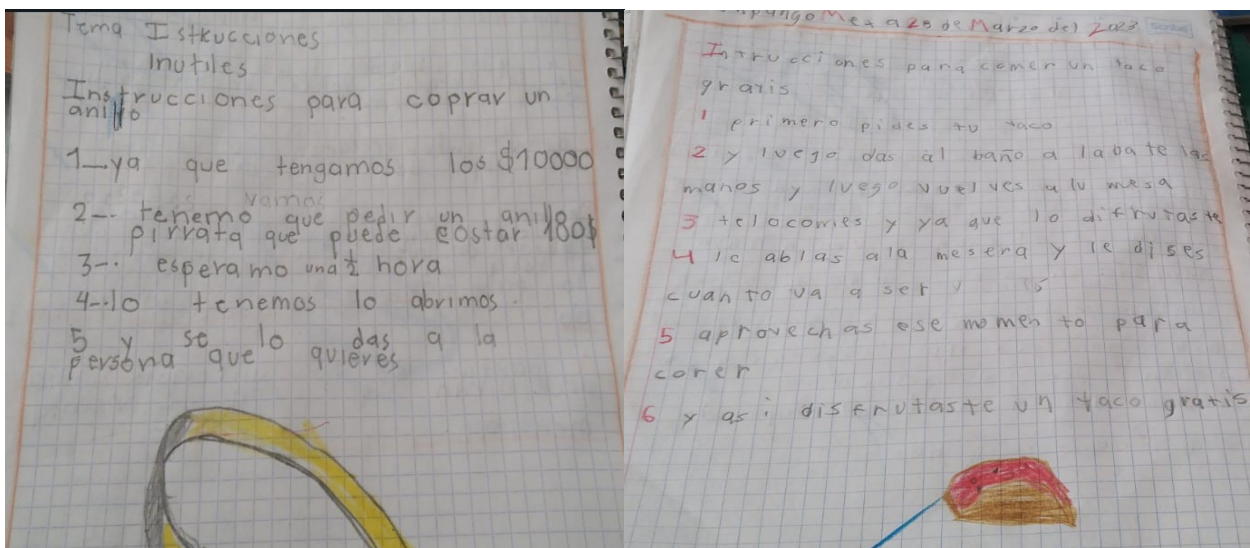 Tema Istrucciones
Inutiles
Instrucciones para coprar un
anillo
1—ya que tengamos los $10000
vamos
2-. tenemo que pedir un anill
pirrata que puede costar 180$
3-. esperamo una ½ hora
4-.lo tenemos lo abrimos.
5 y se lo das a la
persona que quieres
Mex a 28 de Marzo del 2023
Intrucciones para comer un taco
gratis
1 primero pides tu taco
2 y luego das al baño a labate las
manos y luego vuelves a lu mesa
3 telocomes y ya que lo difrutaste
4 le ablas ala mesera y le dises
cuanto va a ser y
5 aprovechas ese momento para
corer
6 y asi disfrutaste un taco gratis